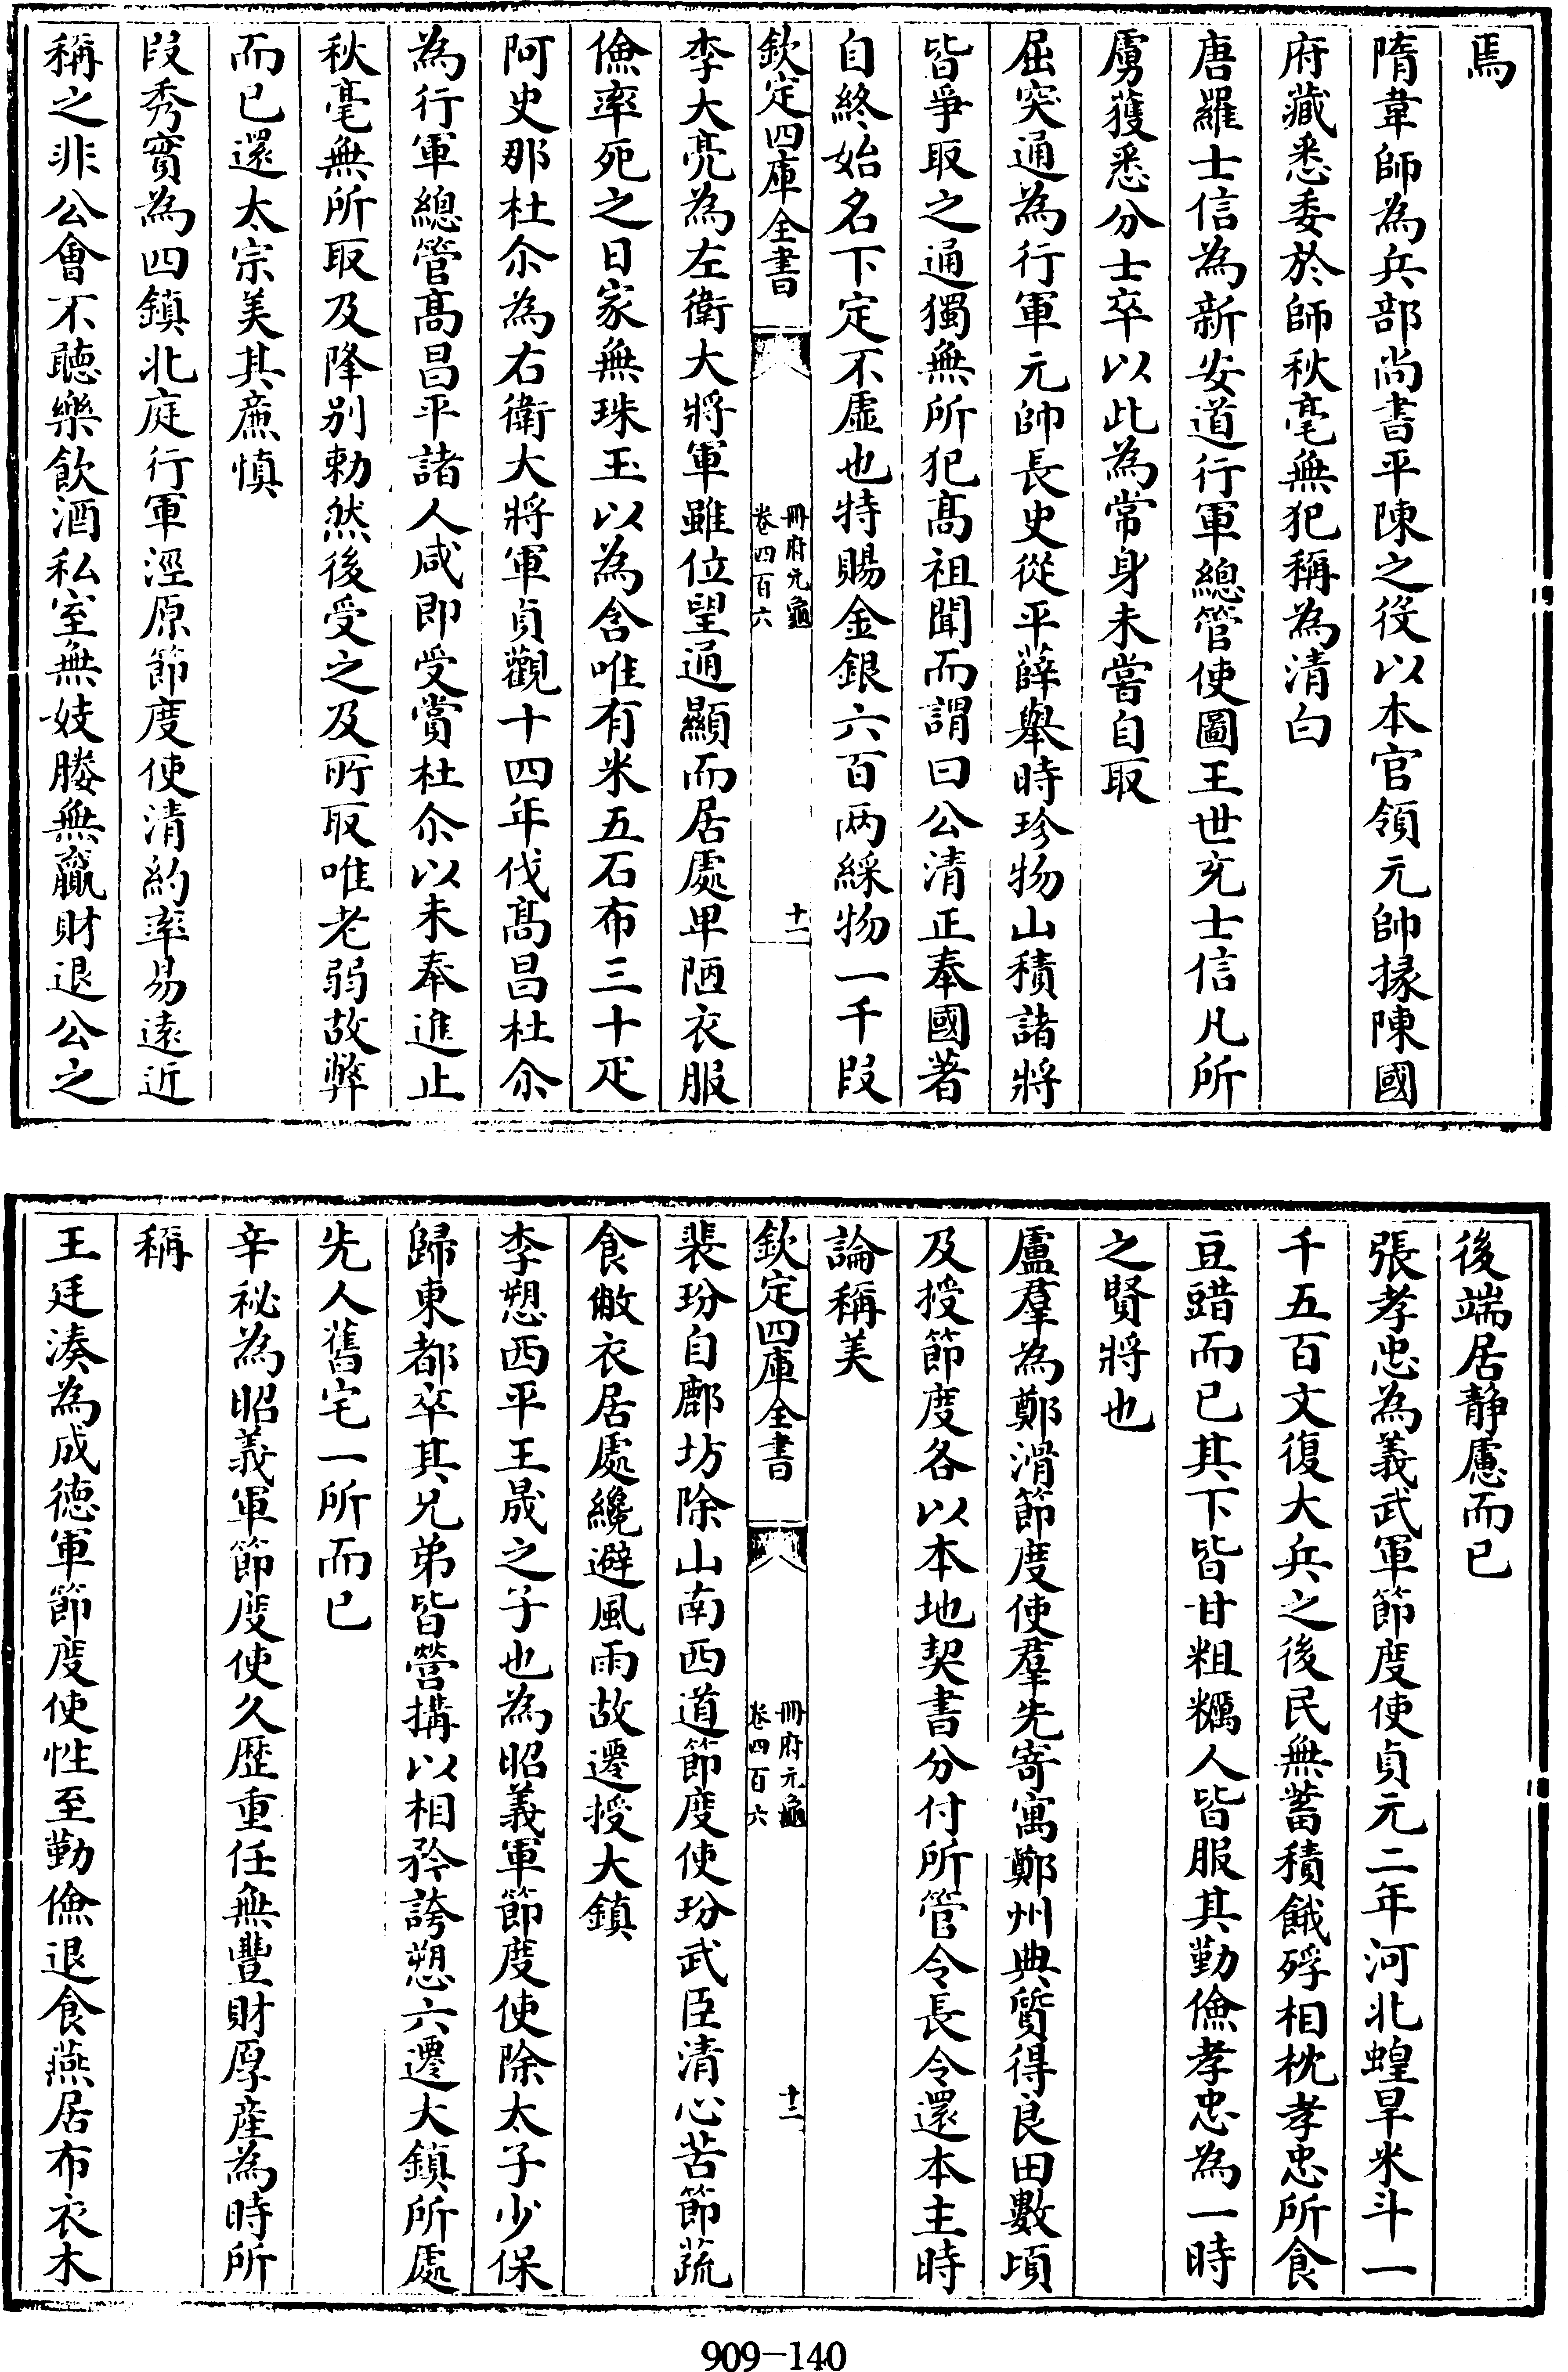 焉
隋韋師為兵部尚書平陳之役以本官領元帥掾陳國
府藏悉委於師秋毫無犯稱為清白
唐羅士信為新安道行軍總管使圖王世充士信凡所
虜獲悉分士卒以此為常身未嘗自取
屈突通為行軍元帥長史從平薛舉時珍物山積諸將
皆爭取之通獨無所犯髙祖聞而謂曰公清正奉國著
自終始名下定不虛也特賜金銀六百兩綵物一千段
欽定四庫全書
冊府元龜
卷四百六
十一
李大亮為左衛大將軍雖位望通顯而居處卑陋衣服
儉率死之日家無珠玉以為含唯有米五石布三十疋
阿史那杜尒為右衛大將軍貞觀十四年伐髙昌杜尒
為行軍總管髙昌平諸人咸即受賞杜尒以未奉進止
秋毫無所取及降别勅然後受之及所取唯老弱故弊
而已還太宗美其亷慎
段秀實為四鎮北庭行軍涇原節度使清約率易遠近
稱之非公會不聽樂飲酒私室無妓媵無贏財退公之
後端居靜慮而已
張孝忠為義武軍節度使貞元二年河北蝗旱米斗一
千五百文復大兵之後民無蓄積餓殍相枕孝忠所食
豆䜺而已其下皆甘粗糲人皆服其勤儉孝忠為一時
之賢將也
盧羣為鄭滑節度使羣先寄寓鄭州典質得良田數頃
及授節度各以本地契書分付所管令長令還本主時
論稱美
欽定四庫全書
冊府元龜
卷四百六
十二
裴玢自鄜坊除山南西道節度使玢武臣清心苦節蔬
食敝衣居處纔避風雨故遷授大鎮
李愬西平王晟之子也為昭義軍節度使除太子少保
歸東都卒其兄弟皆營搆以相矜誇愬六遷大鎮所處
先人舊宅一所而已
辛祕為昭義軍節度使久歷重任無豐財厚產為時所
稱
王廷湊為成德軍節度使性至勤儉退食燕居布衣木
909-140